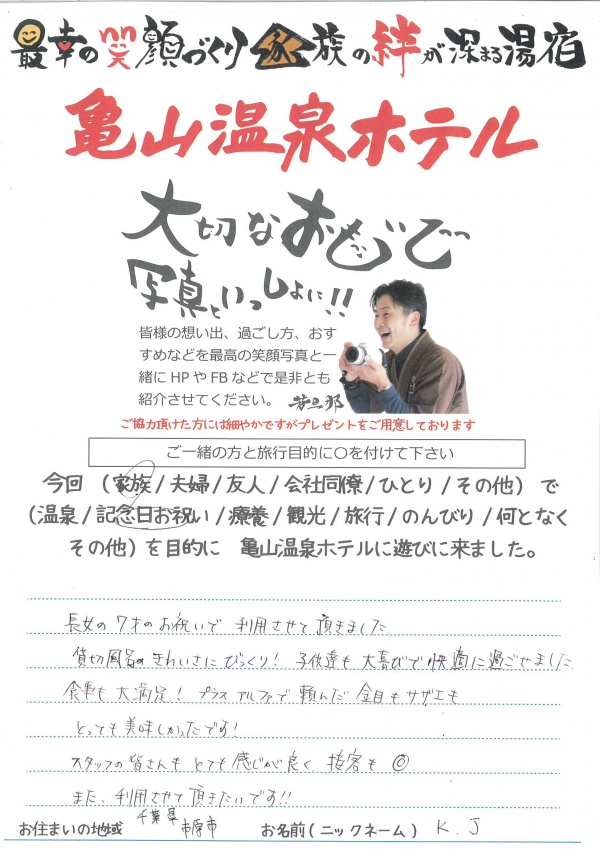 最幸の笑顔づくり 家族の絆が深まる湯宿
亀山温泉ホテル
大切なおもいで
写真といっしょに!!
皆様の想い出、過ごし方、おす
すめなどを最高の笑顔写真と一
緒にHPやFBなどで是非とも
紹介させてください。 若旦那
ご協力頂けた方には細やかですがプレゼントをご用意しております
ご一緒の方と旅行目的に〇を付けて下さい
今回 (家族/夫婦/友人/会社同僚/ひとり/その他) で
(温泉/記念日お祝い/療養/観光/旅行/のんびり/何となく
その他)を目的に 亀山温泉ホテルに遊びに来ました。
長女の7才のお祝いで 利用させて頂きました
貸切風呂のきれいさにびっくり! 子供達も大喜びで快適に過ごせました
食事も大満足! プラスアルファで頼んだ 金目もサザエも
とっても美味しかったです!
スタッフの皆さんもとても感じが良く 接客も◎
また、利用させて頂きたいです!!
お住まいの地域 千葉県市原市 お名前(ニックネーム) K.J